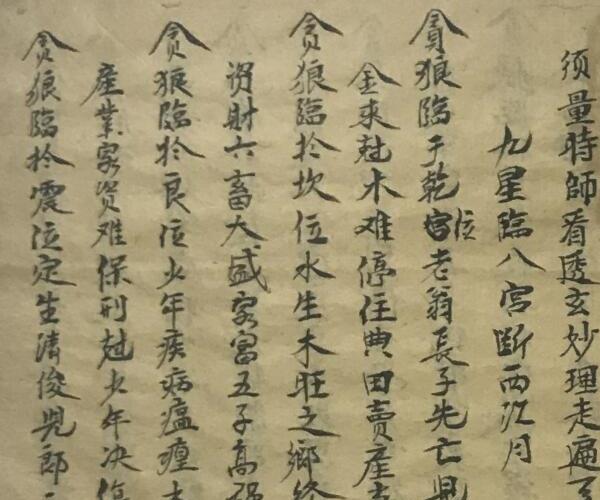 须量時師看透玄妙理走遍
九星臨八宮断西江月
貪狼臨于乾宮位老翁長子先亡
金来尅木难停住典田賣産
貪狼臨於坎位水生木旺之鄉
資財六畜大盛家富五子高
貪狼臨於艮位少年疾病瘟瘽
產業家資难保刑尅少年决傷
貪狼臨於震位定生清俊児郎